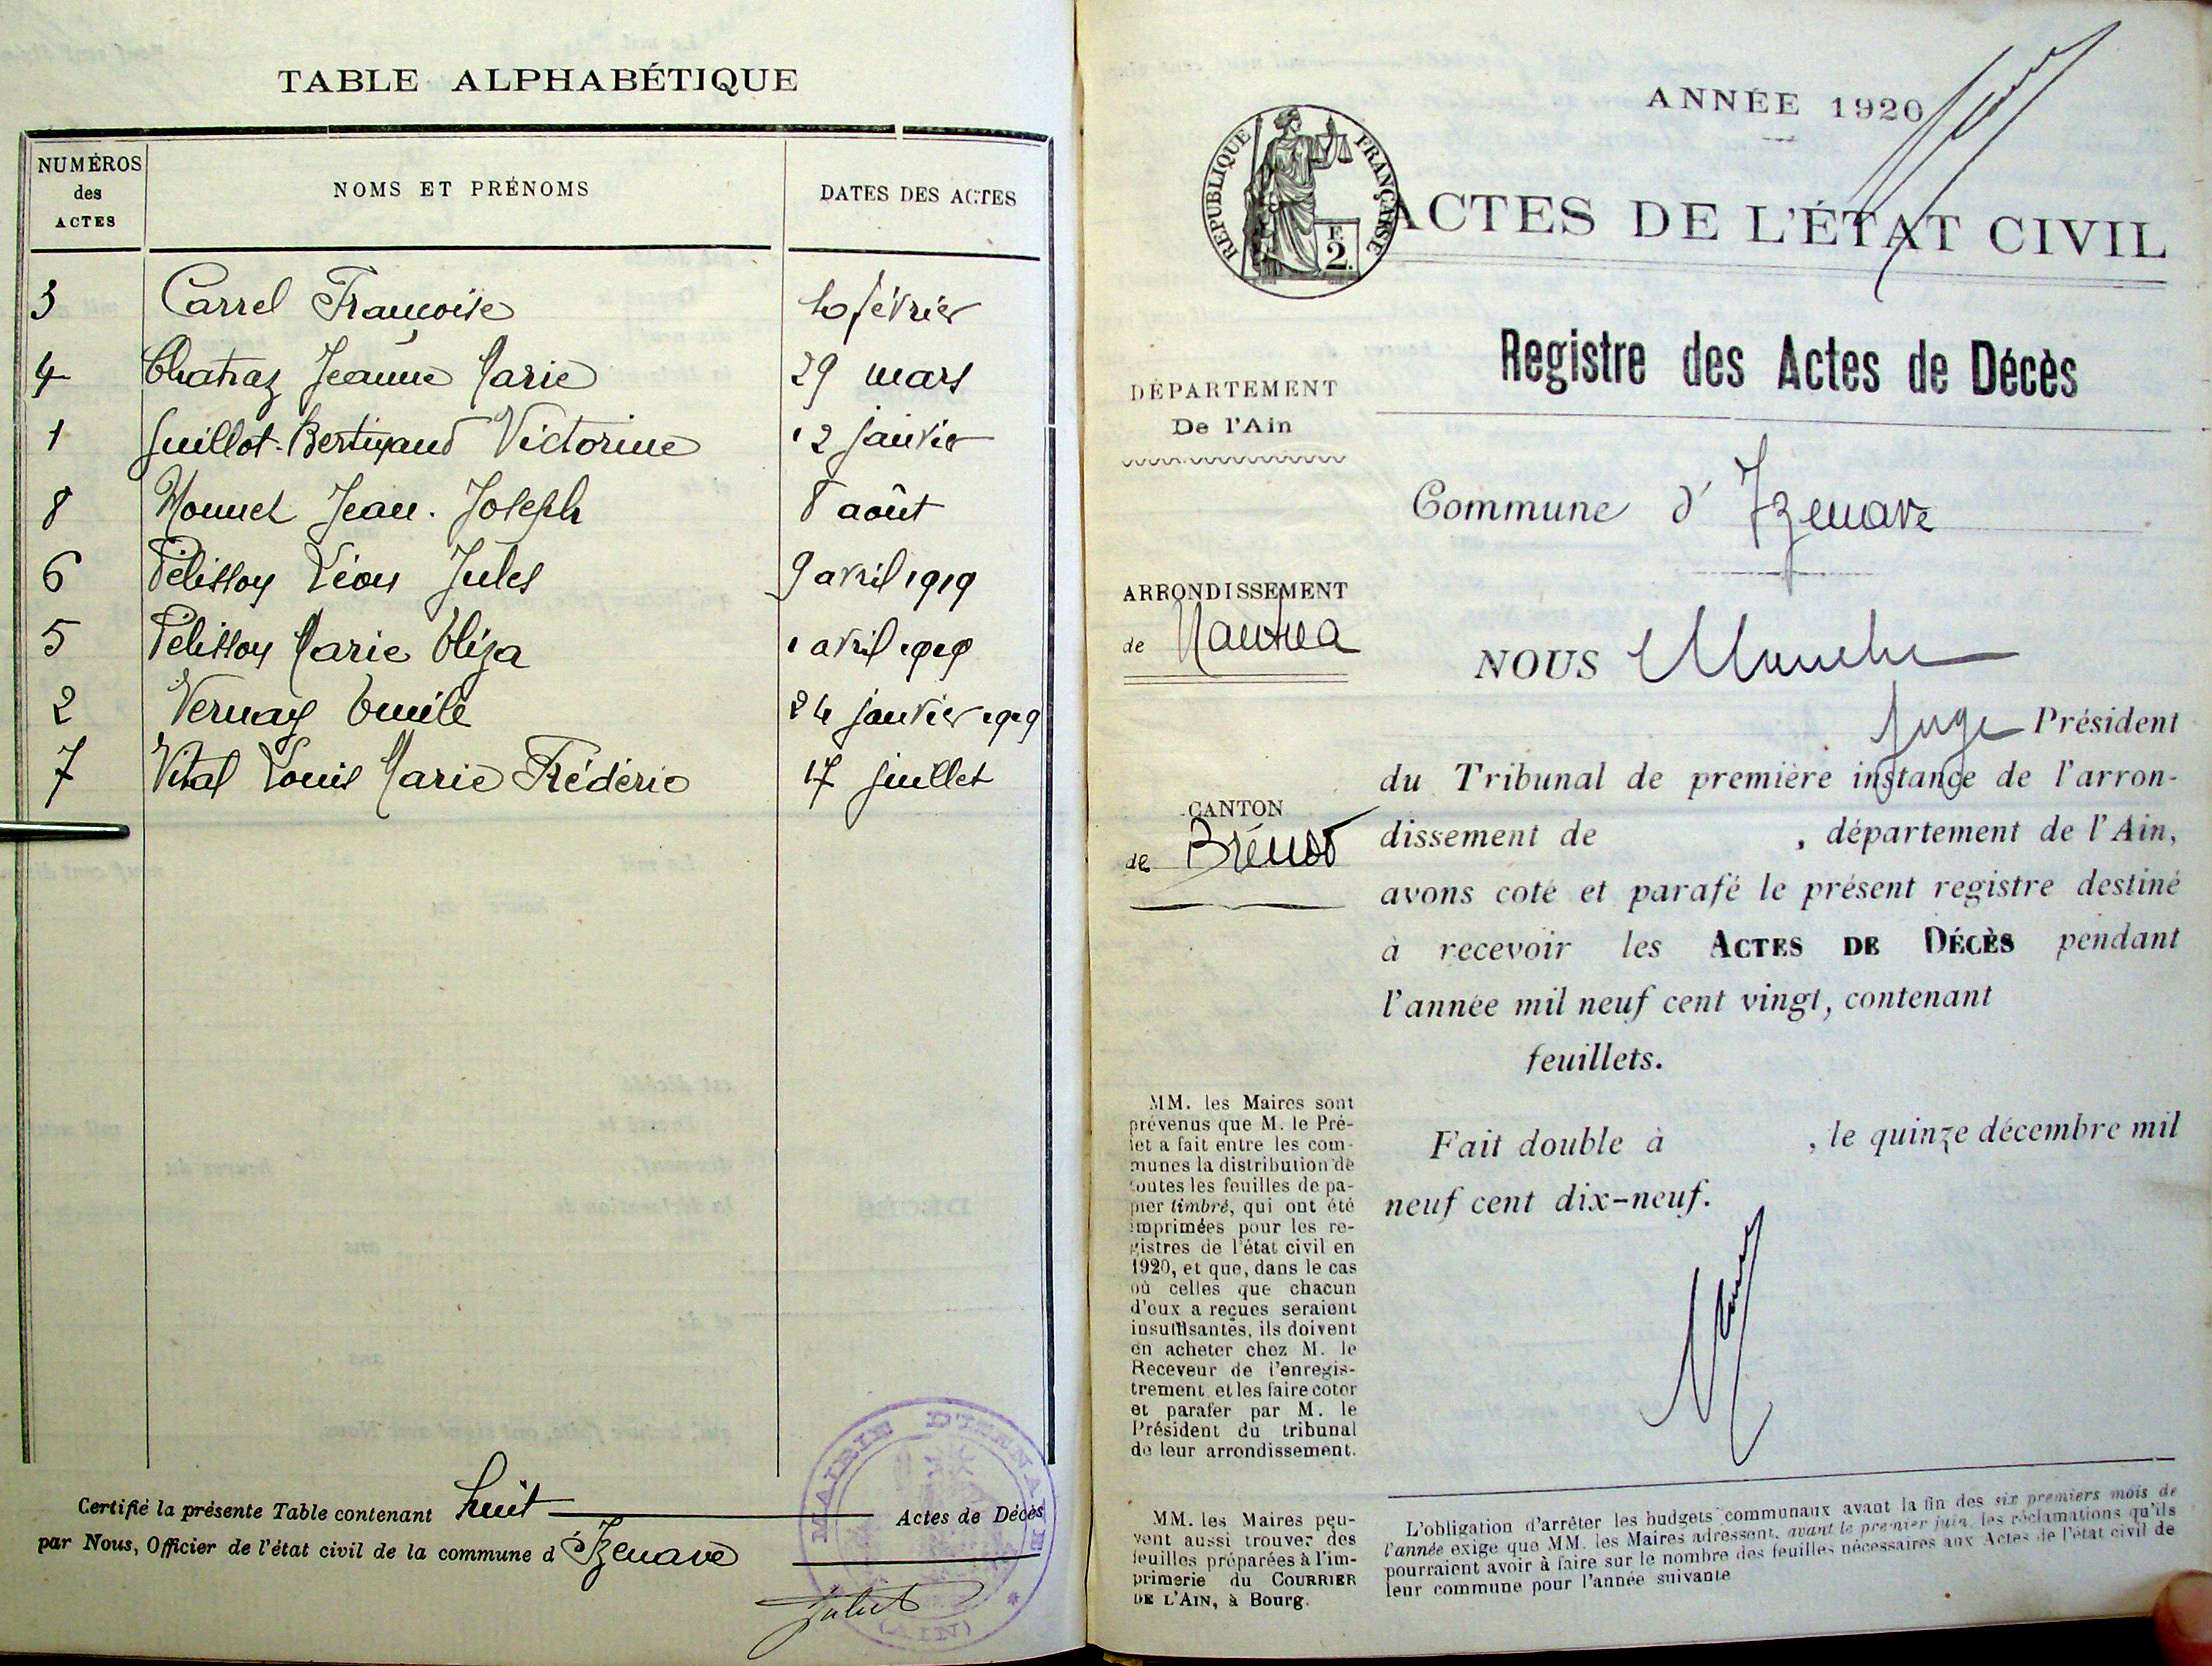 TABLE ALPHABÉTIQUE
NUMÉROS des ACTES NOMS ET PRÉNOMS DATES DES ACTES
3 Carrel Françoise 10 février
4 Chatraz Jeanne Marie 29 mars
1 Guillot-Bertigaud Victorine 12 janvier
8 Monnet Jean-Joseph 8 août
6 Pélisson Léon Jules 9 avril 1919
5 Pélisson Marie Eliza 1 avril 1919
2 Vernay Emile 24 janvier 1919
7 Vital Louis Marie Frédéric 17 juillet
Certifié la présente Table contenant huit Actes de Décès
par Nous, Officier de l'état civil de la commune d'Izenave
MAIRIE D'IZENAVE
(AIN)
ANNÉE 1920
RÉPUBLIQUE FRANÇAISE
F. 2.
ACTES DE L'ÉTAT CIVIL
Registre des Actes de Décès
DÉPARTEMENT
De l'Ain
Commune d'Izenave
ARRONDISSEMENT
de Nantua
CANTON
de Brénod
NOUS
Juge Président
du Tribunal de première instance de l'arron-
dissement de , département de l'Ain,
avons coté et parafé le présent registre destiné
à recevoir les ACTES DE DÉCÈS pendant
l'année mil neuf cent vingt, contenant
feuillets.
Fait double à , le quinze décembre mil
neuf cent dix-neuf.
MM. les Maires sont
prévenus que M. le Pré-
fet a fait entre les com-
munes la distribution de
toutes les feuilles de pa-
pier timbré, qui ont été
imprimées pour les re-
gistres de l'état civil en
1920, et que, dans le cas
où celles que chacun
d'eux a reçues seraient
insuffisantes, ils doivent
en acheter chez M. le
Receveur de l'enregis-
trement et les faire coter
et parafer par M. le
Président du tribunal
de leur arrondissement.
MM. les Maires peu-
vent aussi trouver des
feuilles préparées à l'im-
primerie du COURRIER
DE L'AIN, à Bourg.
L'obligation d'arrêter les budgets communaux avant la fin des six premiers mois de
l'année exige que MM. les Maires adressent, avant le premier juin, les réclamations qu'ils
pourraient avoir à faire sur le nombre des feuilles nécessaires aux Actes de l'état civil de
leur commune pour l'année suivante